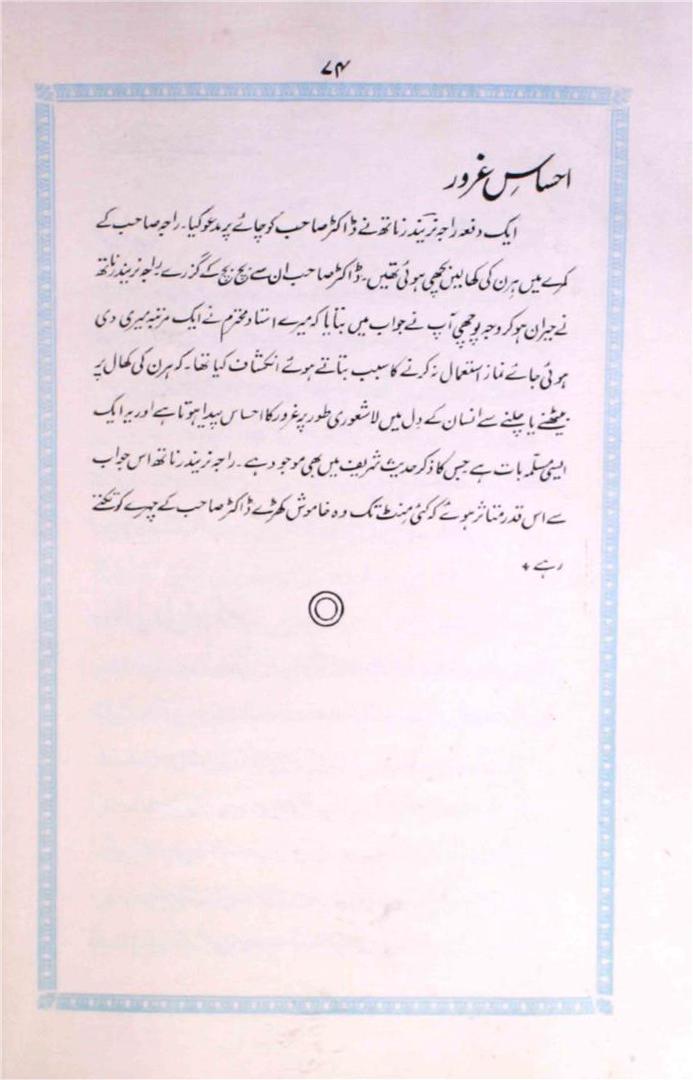 ۷۴
احساسِ غرور
ایک دفعہ راجہ نریندر ناتھ نے ڈاکٹر صاحب کو چائے پر مدعو کیا۔ راجہ صاحب کے
کمرے میں ہرن کی کھالیں بچھی ہوئی تھیں۔ ڈاکٹر صاحب ان سے بچ بچ کے گزرے۔ راجہ نریندر ناتھ
نے حیران ہو کر وجہ پوچھی آپ نے جواب میں بتایا کہ میرے استاد محترم نے ایک مرتبہ میری دی
ہوئی جائے نماز استعمال نہ کرنے کا سبب بتاتے ہوئے انکشاف کیا تھا۔ کہ ہرن کی کھال پر
بیٹھنے یا چلنے سے انسان کے دل میں لاشعوری طور پر غرور کا احساس پیدا ہوتا ہے اور یہ ایک
ایسی مسلمہ بات ہے جس کا ذکر حدیث شریف میں بھی موجود ہے۔ راجہ نریندر ناتھ اس جواب
سے اس قدر متاثر ہوئے کہ کئی منٹ تک وہ خاموش کھڑے ڈاکٹر صاحب کے چہرے کو تکتے
رہے *